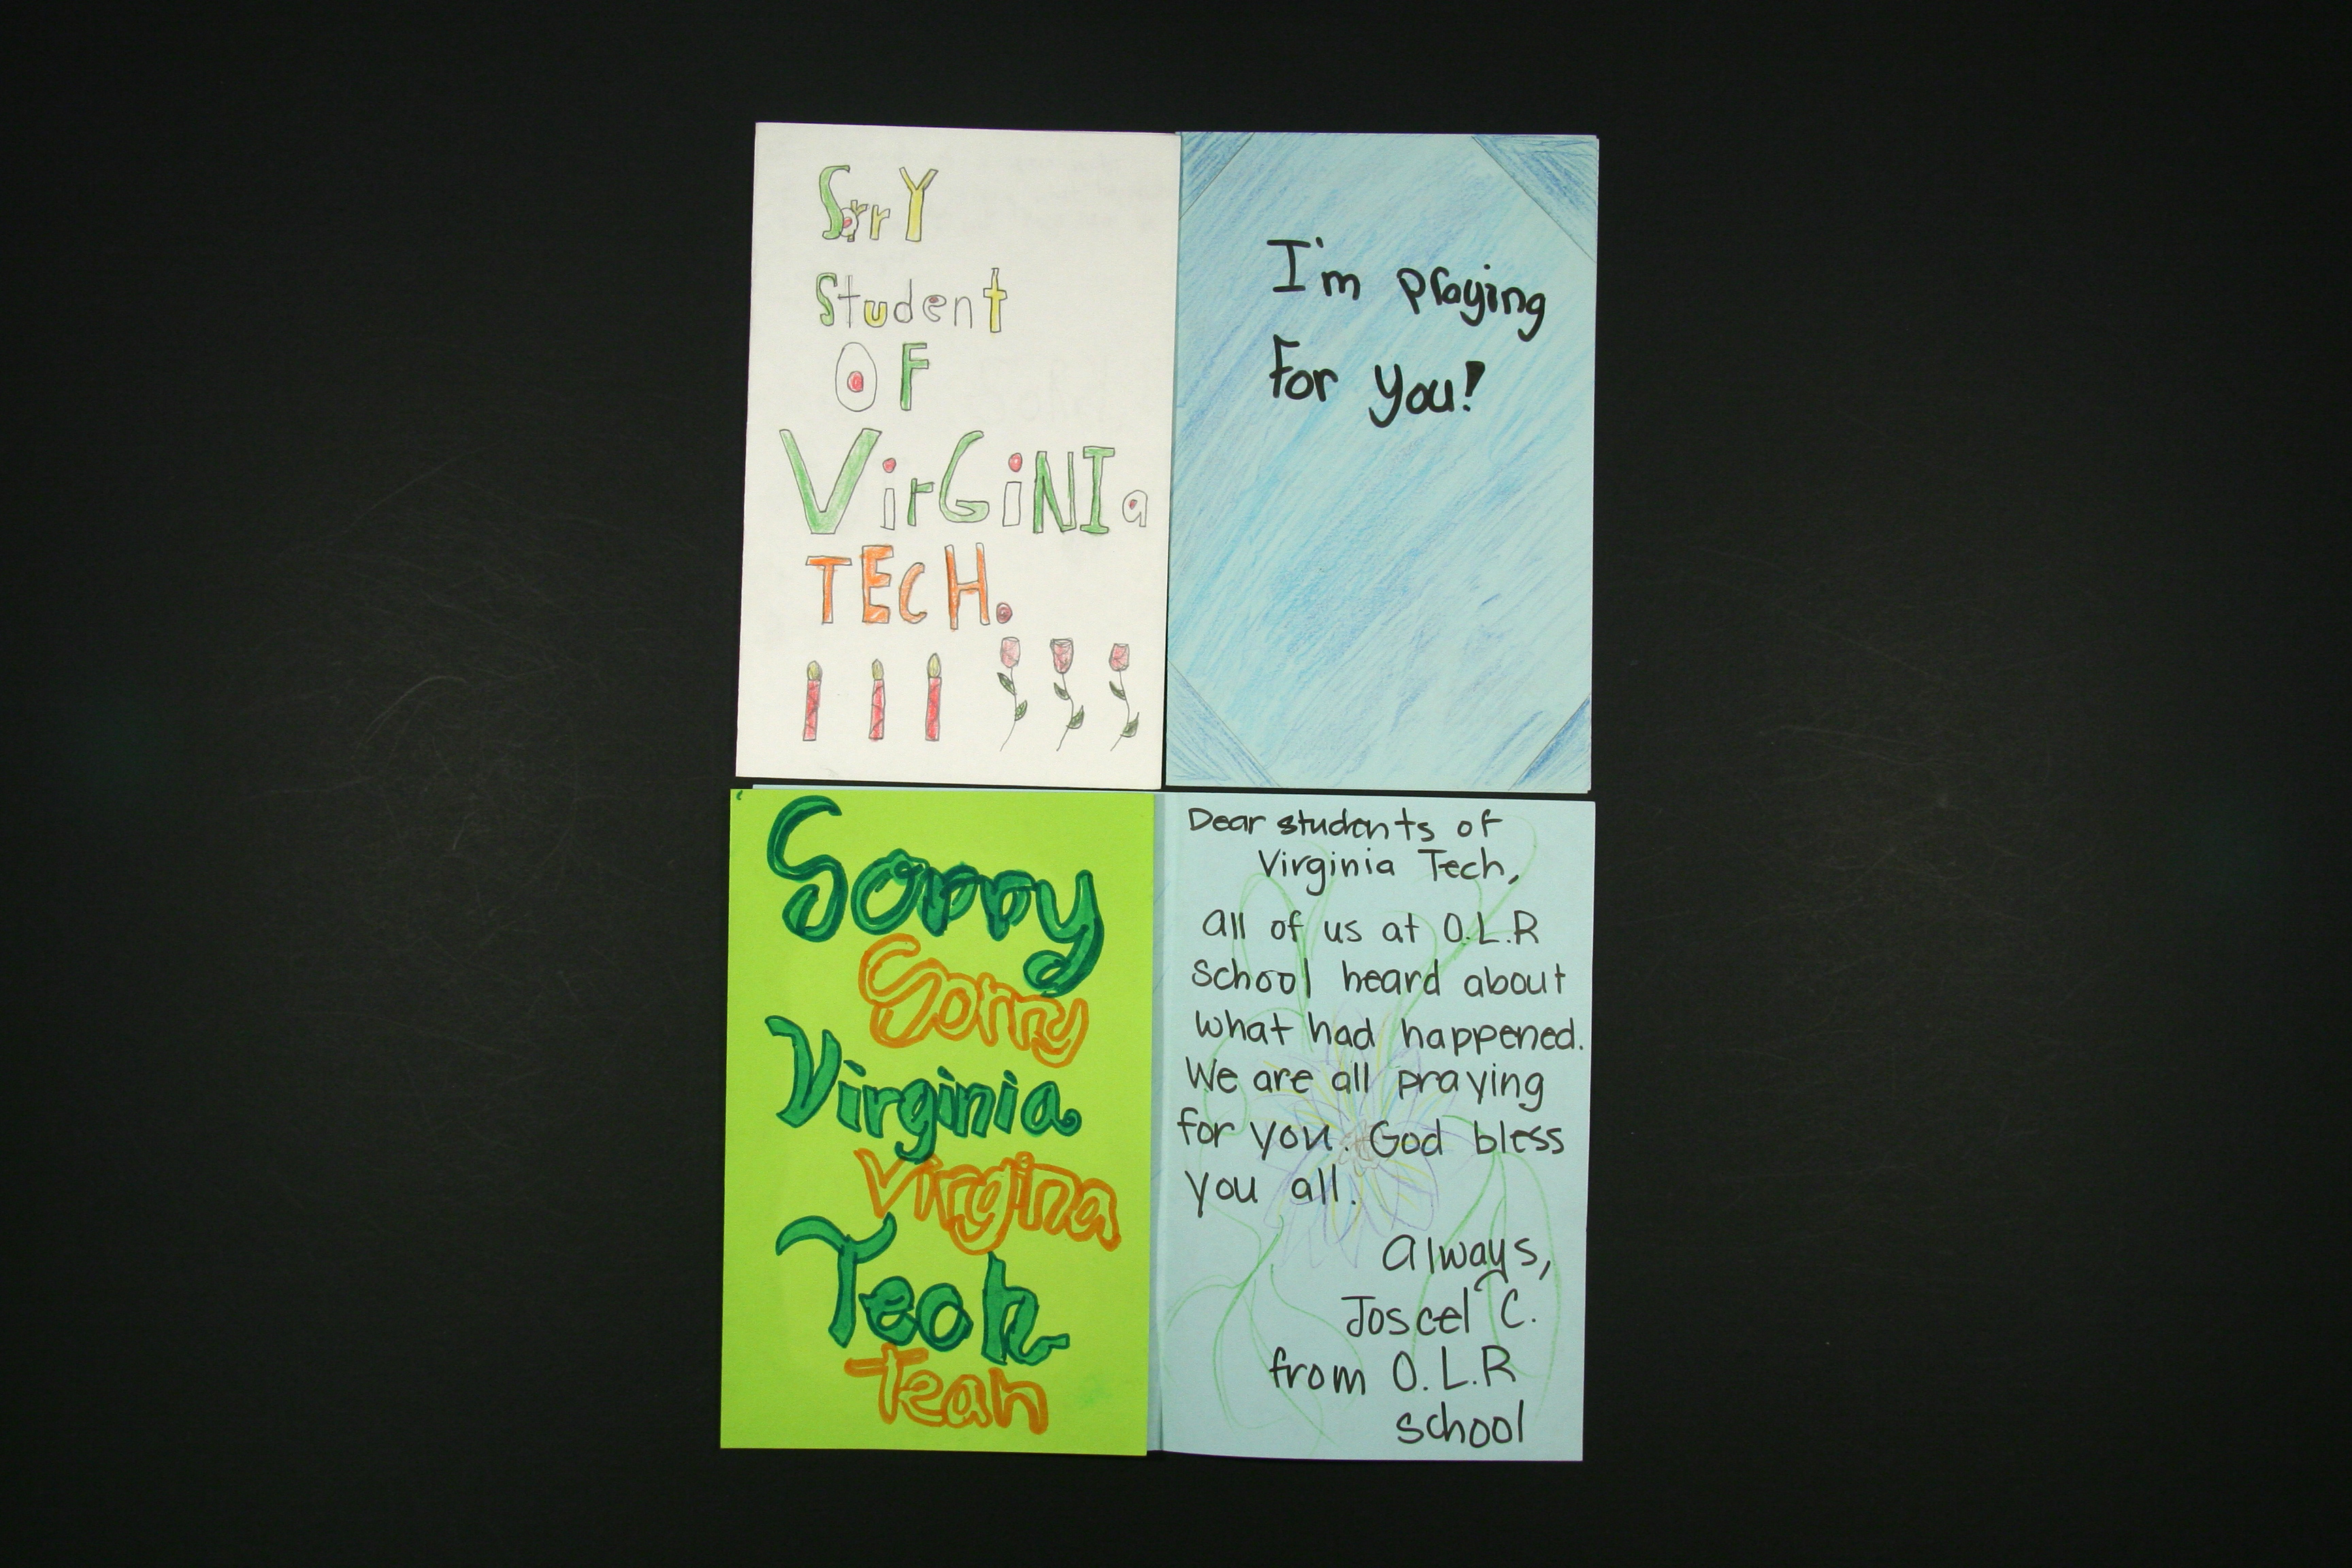 SorrY
Student
OF
VirGiNIa
TECH.
I'm praying
For you!
Sorry
Sorry
Virginia
Virgina
Tech
Tech
Dear students of
Virginia Tech,
all of us at O.L.R
School heard about
what had happened.
We are all praying
for you. God bless
you all.
always,
Joscel C.
from O.L.R
school